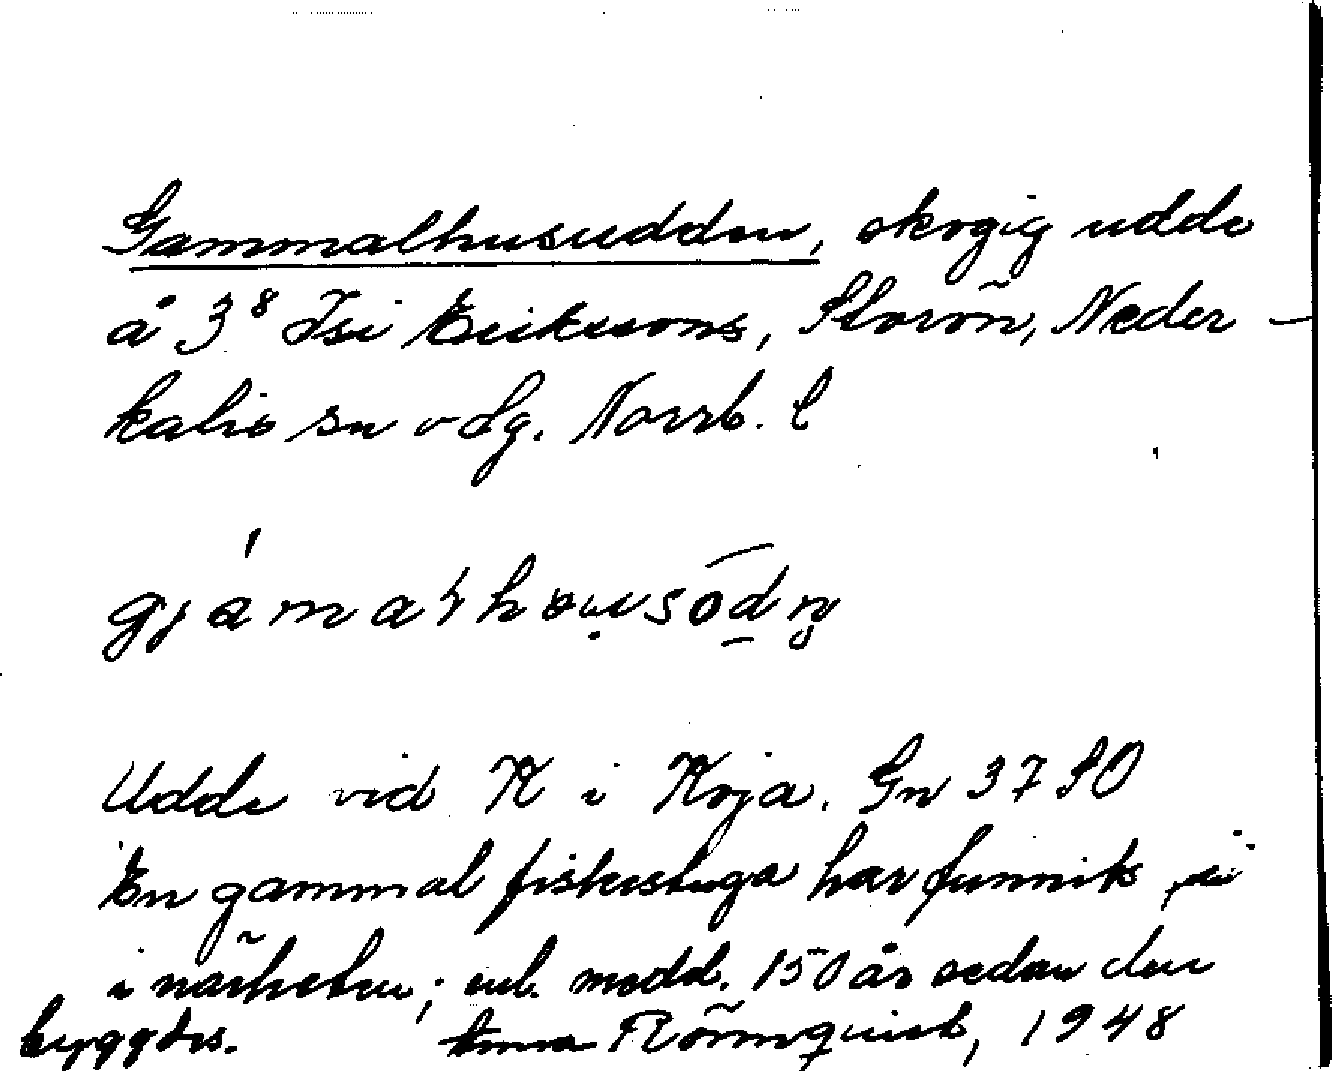 Gammalhusudden, skogig udde
å 3⁸ Isi Erikssons, Storön, Neder-
kalix sn o. dg. Norrb. l
Udde vid K i Koja. Gn 37 SO
En gammal fiskestuga har funnits
i närheten; enl. medd. 150 år sedan den
byggdes. Anna Rönnquist, 1948